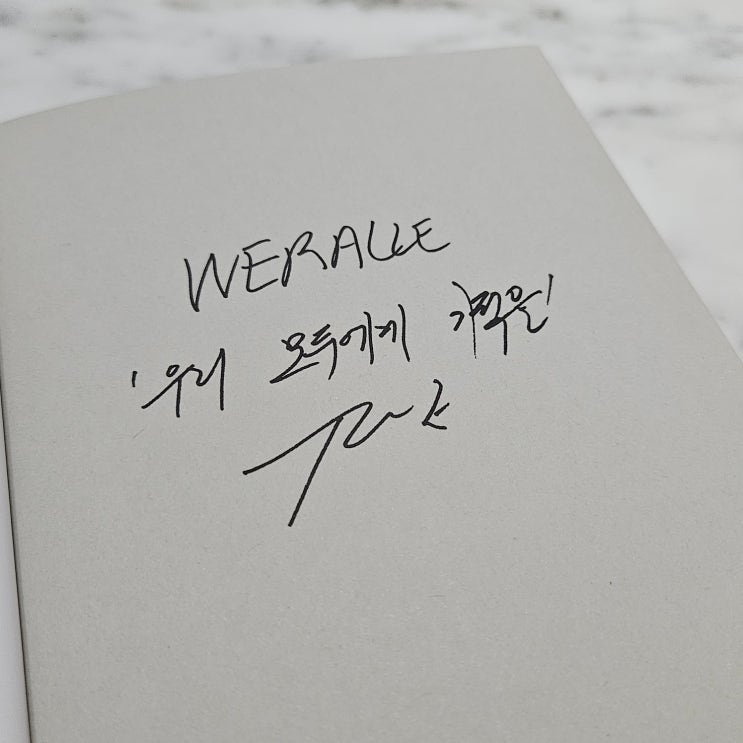 WERALLE
'우리 모두에게 기적을'